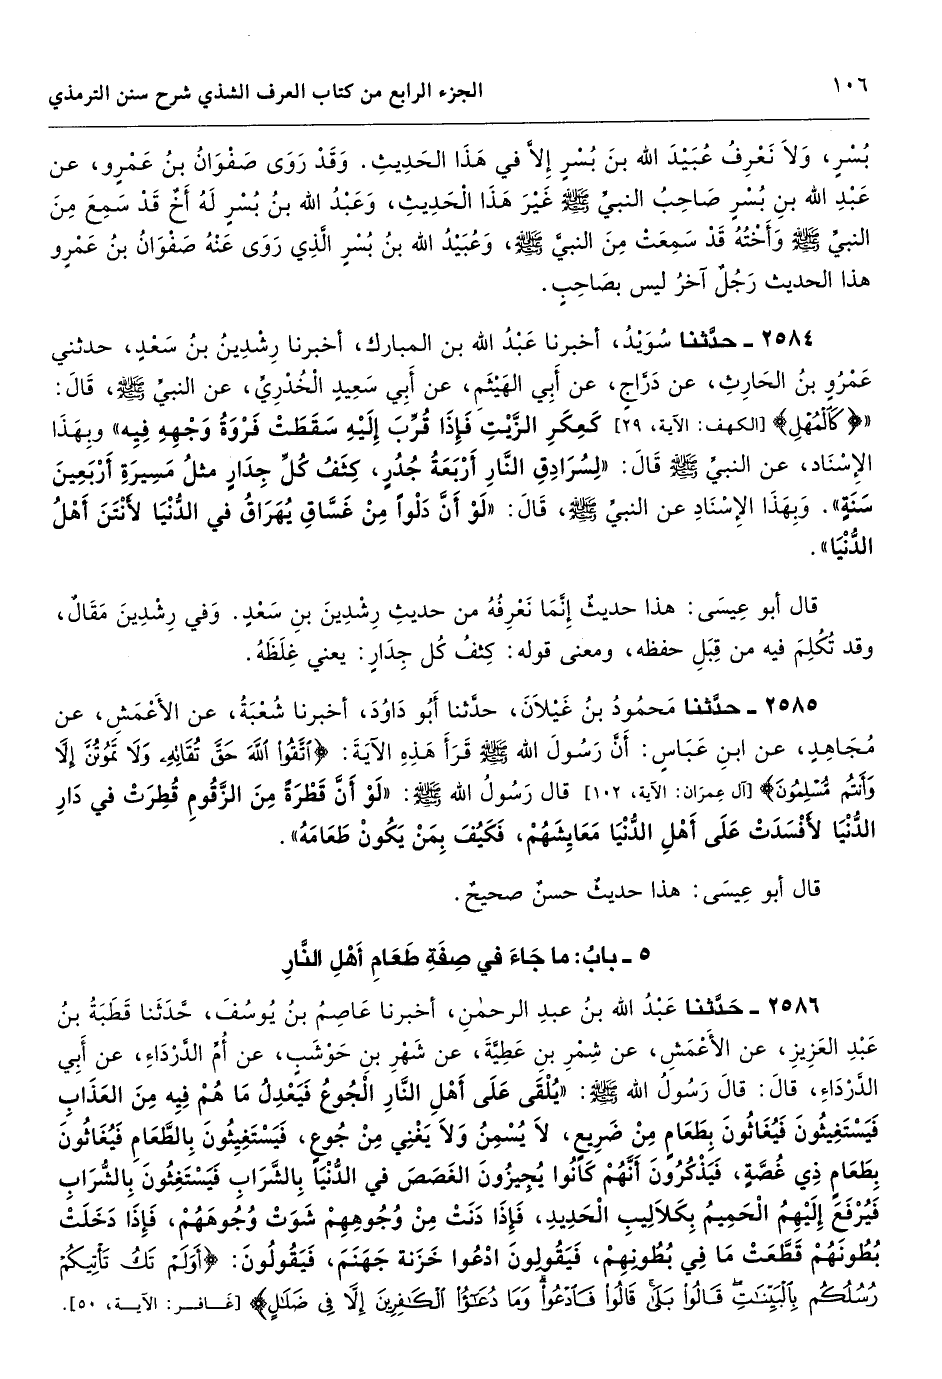 ١٠٦ الجزء الرابع من كتاب العرف الشذي شرح سنن الترمذي
بُسْرٍ، وَلاَ نَعْرِفُ عُبَيْدَ الله بنَ بُسْرٍ إِلاَّ في هَذَا الحَدِيثِ. وَقَدْ رَوَى صَفْوَانُ بنُ عَمْرِو، عن
عَبْدِ الله بنِ بُسْرٍ صَاحِبُ النبيِّ ﷺ غَيْرَ هَذَا الْحَدِيثِ، وَعَبْدُ الله بنُ بُسْرٍ لَهُ أَخٌ قَدْ سَمِعَ مِنَ
النبيِّ ﷺ وَأُخْتُهُ قَدْ سَمِعَتْ مِنَ النبيِّ ﷺ، وَعُبَيْدُ الله بنُ بُسْرٍ الَّذِي رَوَى عَنْهُ صَفْوَانُ بن عَمْرِو
هذا الحديث رَجُلٌ آخرُ ليس بصَاحِبٍ.
٢٥٨٤ ـ حدَّثنا سُوَيْدٌ، أخبرنا عَبْدُ الله بن المبارك، أخبرنا رِشْدِينُ بنُ سَعْدٍ، حدثني
عَمْرُو بنُ الحَارِثِ، عن دَرَّاجٍ، عن أبِي الهَيْثَمِ، عن أبِي سَعِيدٍ الْخُدْرِيِّ، عن النبيِّ ﷺ، قَالَ:
«﴿كَالْمُهْلِ﴾ [الكهف: الآية، ٢٩] كَعِكَرِ الزَّيْتِ فَإِذَا قُرِّبَ إِلَيْهِ سَقَطَتْ فَرْوَةُ وَجْهِهِ فِيه» وبِهَذَا
الإِسْنَاد، عن النبيِّ ﷺ قَالَ: «لِسُرَادِقِ النَّارِ أَرْبَعَةُ جُدُرٍ، كِثَفُ كُلِّ جِدَارٍ مثلُ مَسِيرَةِ أَرْبَعِينَ
سَنَةٍ». وَبِهَذَا الإِسْنَادِ عن النبيِّ ﷺ، قَالَ: «لَوْ أَنَّ دَلْواً مِنْ غَسَّاقٍ يُهَرَاقُ في الدُّنْيَا لأَنْتَنَ أَهْلُ
الدُّنْيَا».
قال أبو عِيسَى: هذا حديثٌ إِنَّمَا نَعْرِفُهُ من حديثِ رِشْدِينَ بنِ سَعْدٍ. وَفي رِشْدِينَ مَقَالٌ،
وقد تُكُلِمَ فيه من قِبَلِ حفظه، ومعنى قوله: كِثفُ كُل جِدَارٍ: يعني غِلَظَهُ.
٢٥٨٥ ـ حدَّثنا مَحمُودُ بنُ غَيْلاَنَ، حدَّثنا أبُو دَاوُدَ، أخبرنا شُعْبَةُ، عن الأَعْمَشِ، عن
مُجَاهِدٍ، عن ابنِ عَبَاسٍ: أَنَّ رَسُولَ الله ﷺ قَرَأَ هَذِهِ الآيَةَ: ﴿اتَّقُوا اللَّهَ حَقَّ تُقَاتِهِ وَلَا تَمُوتُنَّ إِلَّا
وَأَنتُم مُّسْلِمُونَ﴾ [آل عِمرَان: الآية، ١٠٢] قال رَسُولُ الله ﷺ: «لَوْ أَنَّ قَطْرَةً مِنَ الزَّقُومِ قُطِرَتْ في دَارِ
الدُّنْيَا لأَفْسَدَتْ عَلَى أَهْلِ الدُّنْيَا مَعَايِشَهُمْ، فَكَيُفَ بِمَنْ يَكُونْ طَعَامَهُ».
قال أبو عِيسَى: هذا حديثٌ حسنٌ صحيحٌ.
٥ ـ بابُ: ما جَاءَ في صِفَةِ طَعَامِ أَهْلِ النَّارِ
٢٥٨٦ ـ حَدَّثنا عَبْدُ الله بنُ عبدِ الرحمٰنِ، أخبرنا عَاصِمُ بنُ يُوسُفَ، حَّدَثَنا قَطَبَةُ بنُ
عَبْدِ العَزِيزِ، عن الأعْمَشِ، عن شِمْرِ بنِ عَطِيَّةَ، عن شَهْرِ بنِ حَوْشَبٍ، عن أُمِّ الدَّرْدَاءِ، عن أَبِي
الدَّرْدَاءِ، قالَ: قالَ رَسُولُ الله ﷺ: «يُلْقَى عَلَى أَهْلِ النَّارِ الْجُوعُ فَيَعْدِلُ مَا هُمْ فِيهِ مِنَ العَذَابِ
فَيَسْتَغِيثُونَ فَيُغَاثُونَ بِطَعَامٍ مِنْ ضَرِيعٍ، لاَ يُسْمِنُ وَلاَ يَغْنِي مِنْ جُوعٍ، فَيَسْتَغِيثُونَ بِالطَّعَامِ فَيُغَاثُونَ
بِطَعَامٍ ذِي غُصَّةٍ، فَيَذْكُرُونَ أَنَّهُمْ كَانُوا يُجِيزُونَ الغَصَصَ في الدُّنْيَا بِالشَّرَابِ فَيَسْتَغِثُونَ بِالشَّرَابِ
فَيُرْفَعُ إِلَيْهِمُ الْحَمِيمُ بِكَلاَلِيبِ الْحَدِيدِ، فَإِذَا دَنَتْ مِنْ وُجُوهِهِمْ شَوَتْ وُجُوهَهُمْ، فَإِذَا دَخَلَتْ
بُطُونَهُمْ قَطَّعَتْ مَا فِي بُطُونِهِمْ، فَيَقُولِونَ ادْعُوا خَزَنةَ جَهَنَمَ، فَيَقُولُونَ: ﴿أَوَلَمْ تَكُ تَأْتِيكُمْ
رُسُلُكُم بِالْبَيِّنَاتِ قَالُوا بَلَى قَالُوا فَادْعُوا وَمَا دُعَاءُ الْكَافِرِينَ إِلَّا فِي ضَلَالٍ﴾ [غَافِر: الآية، ٥٠].